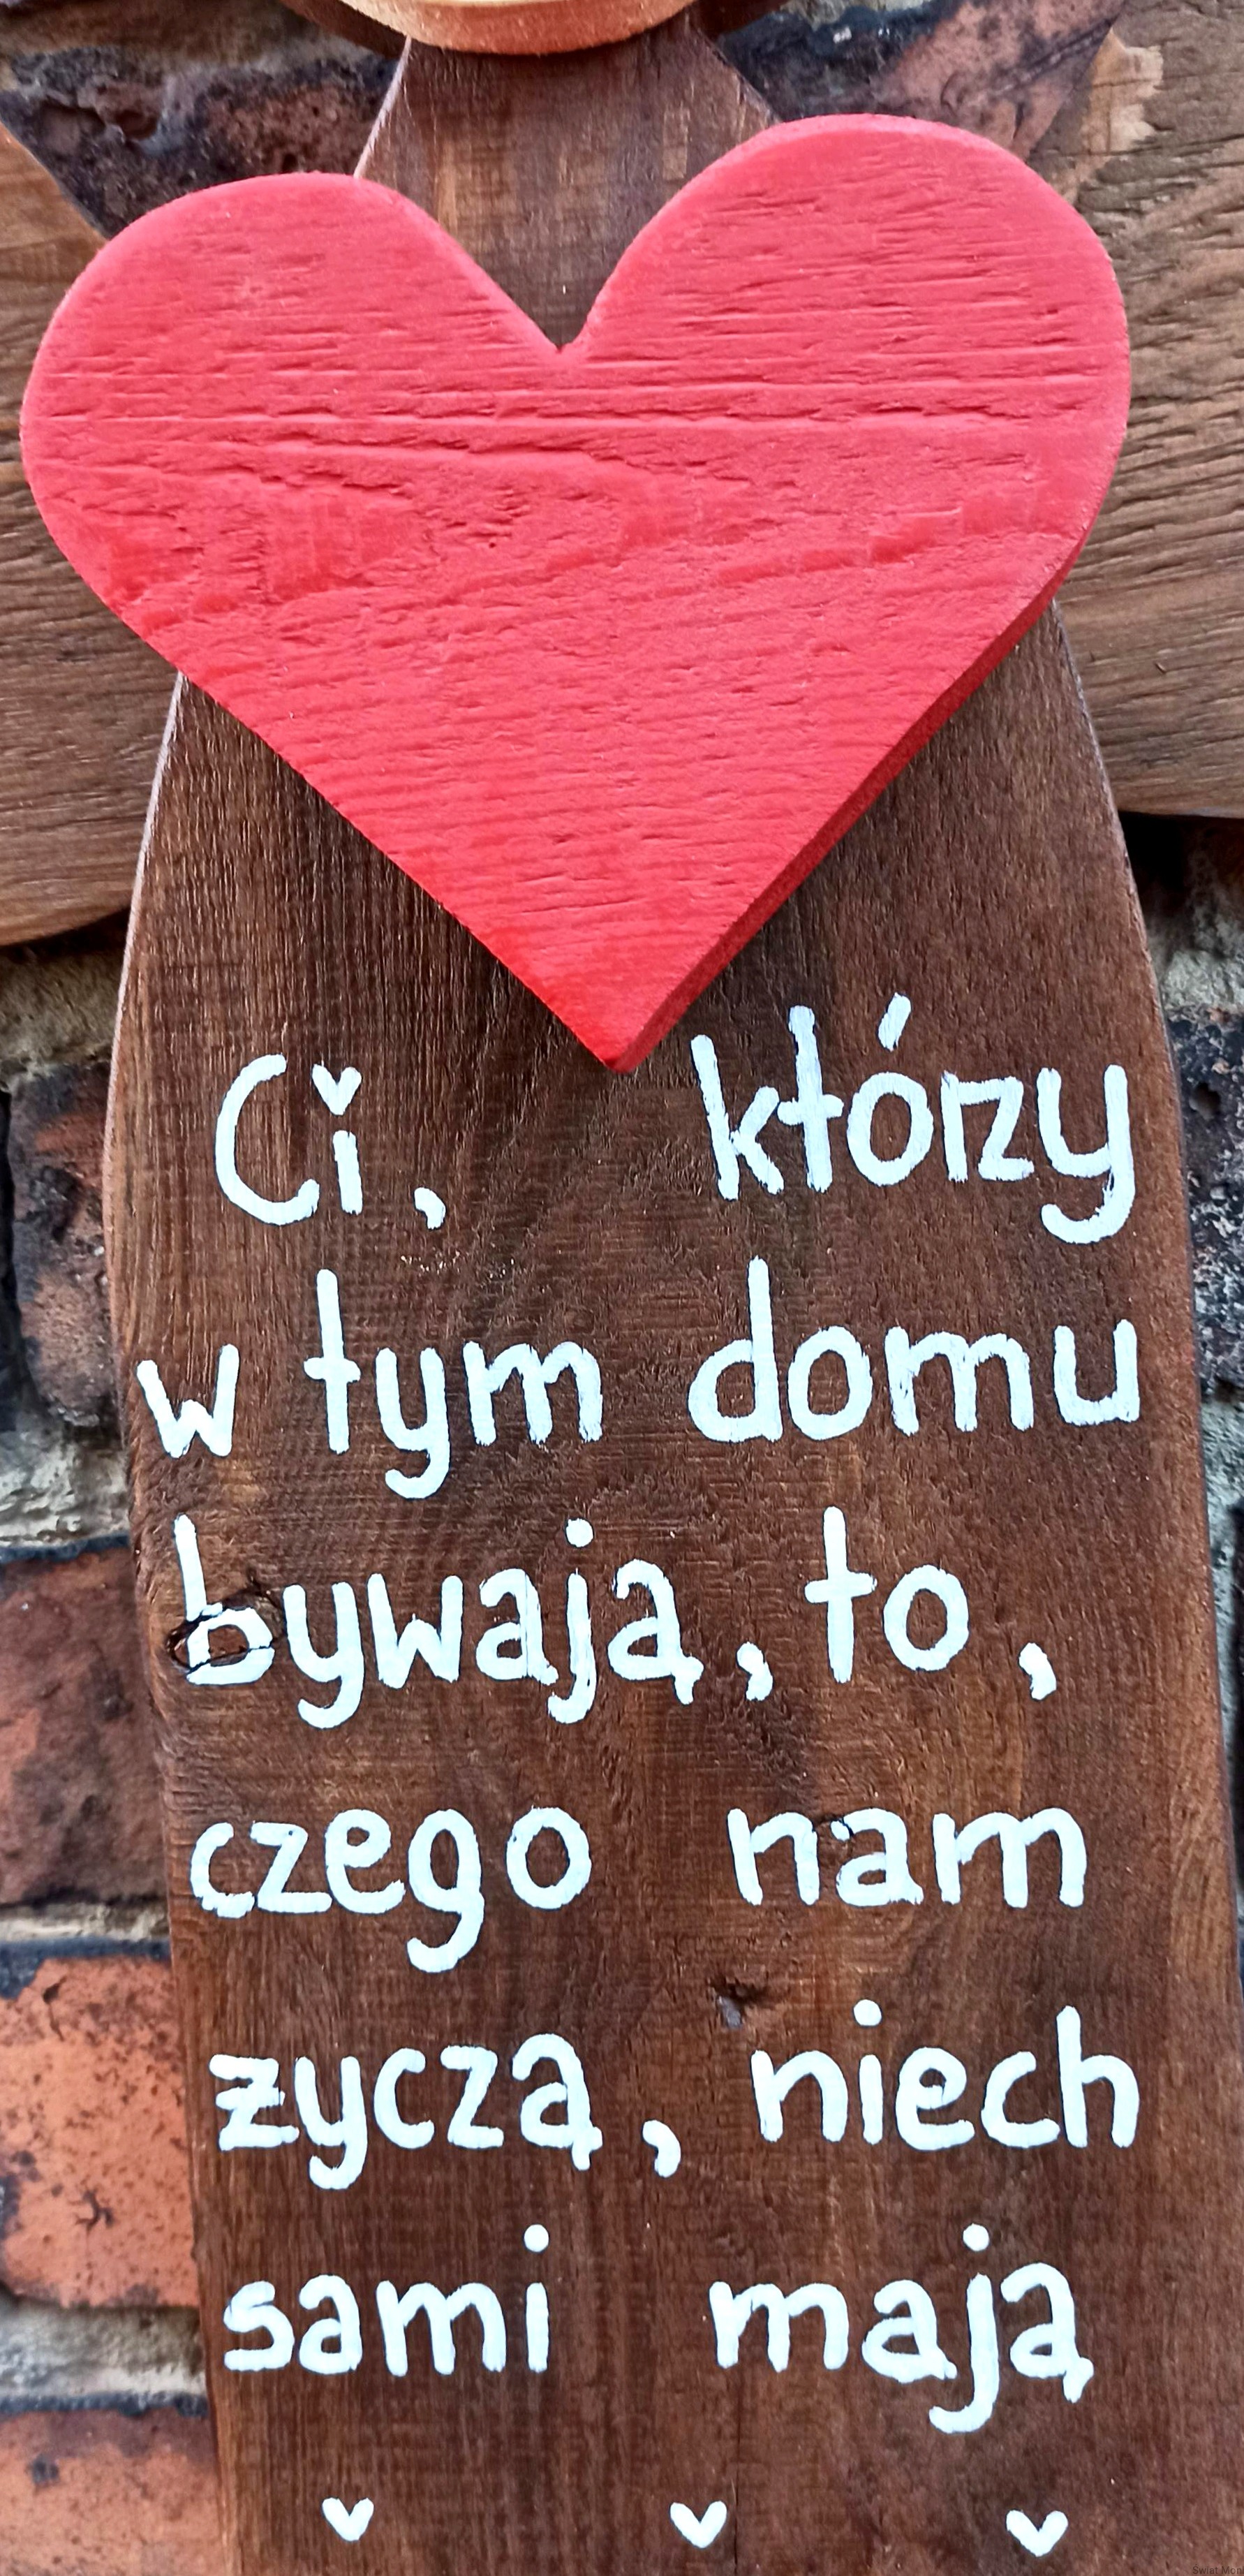 Ci, którzy
w tym domu
bywają, to,
czego nam
życzą, niech
sami mają
Świat Mon